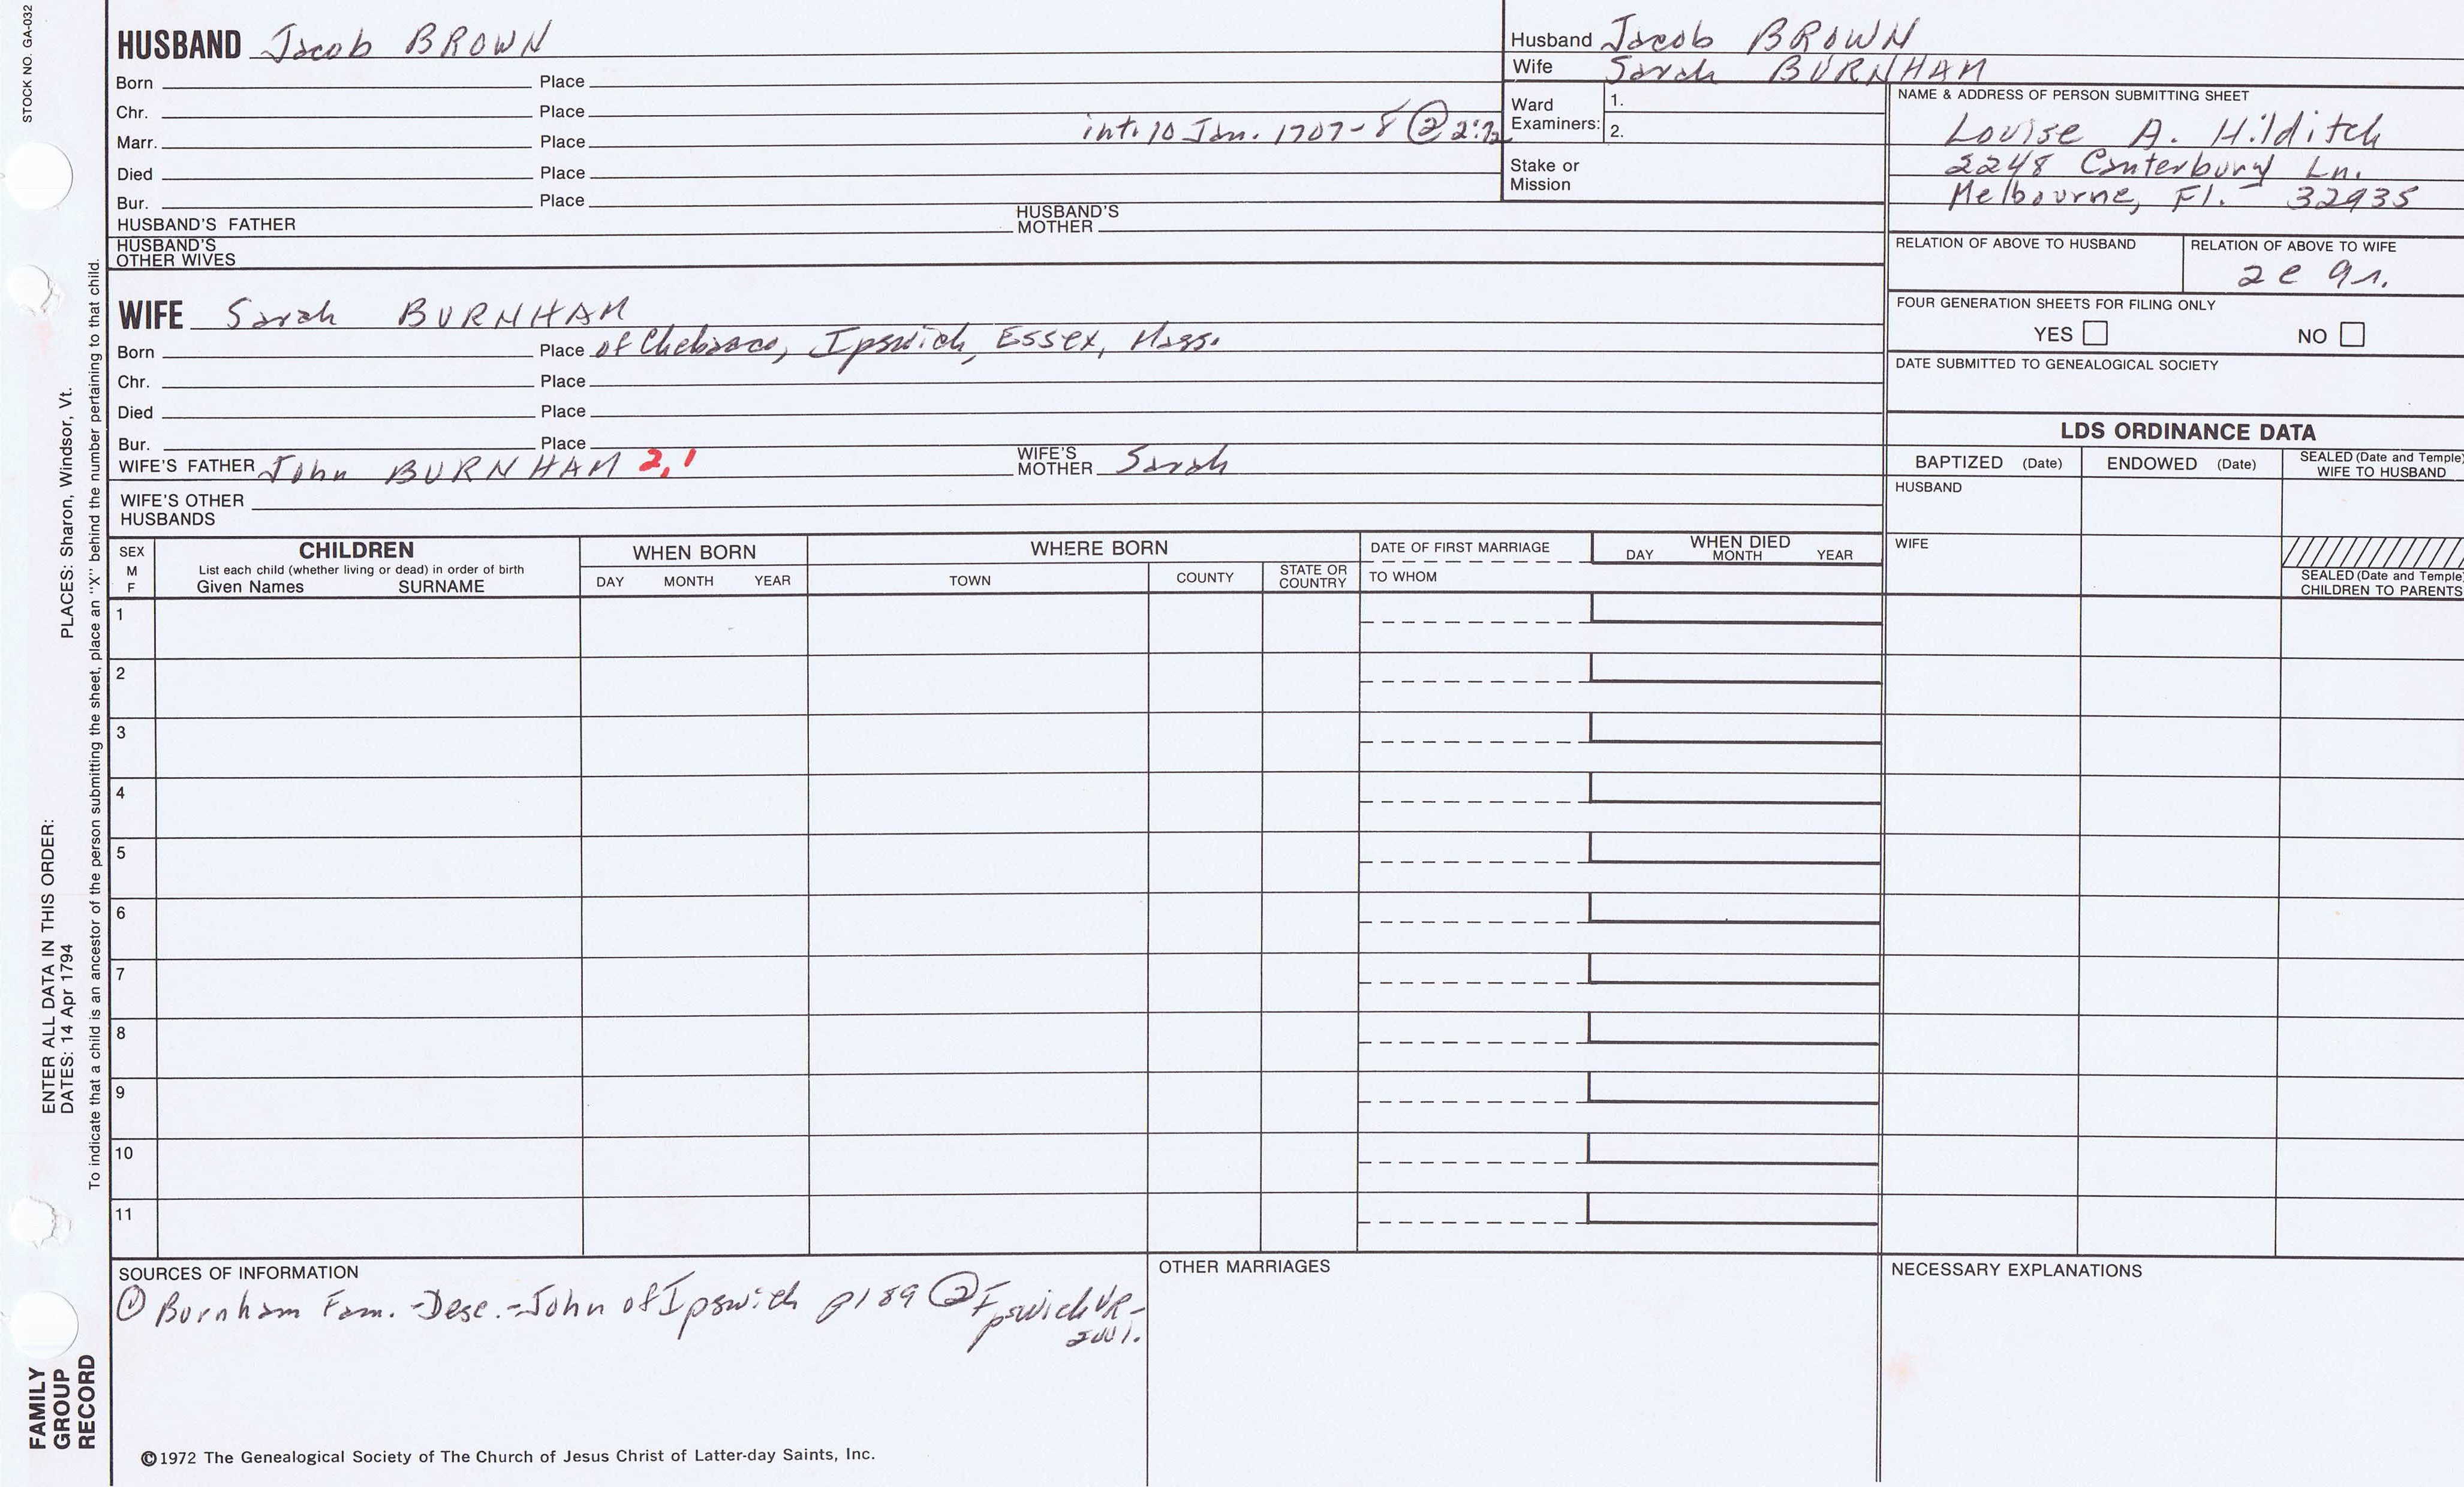 STOCK NO. GA-032
HUSBAND Jacob BROWN
Born Place
Chr. Place
int. 10 Jan. 1707-8 ②
Marr. Place
Died Place
Bur. Place
HUSBAND'S FATHER HUSBAND'S MOTHER
HUSBAND'S OTHER WIVES
Husband Jacob BROWN
Wife Sarah BURNHAM
Ward Examiners: 1.
2.
Stake or Mission
NAME & ADDRESS OF PERSON SUBMITTING SHEET
Louise A. Hilditch
2248 Canterbury Ln.
Melbourne, Fl. - 32935
RELATION OF ABOVE TO HUSBAND
RELATION OF ABOVE TO WIFE
FOUR GENERATION SHEETS FOR FILING ONLY
YES NO
DATE SUBMITTED TO GENEALOGICAL SOCIETY
WIFE Sarah BURNHAM
Born Place of Chebacco, Ipswich, Essex, Mass.
Chr. Place
Died Place
Bur. Place
WIFE'S FATHER John BURNHAM 2,1 WIFE'S MOTHER Sarah
WIFE'S OTHER HUSBANDS
LDS ORDINANCE DATA
BAPTIZED (Date) ENDOWED (Date) SEALED (Date and Temple) WIFE TO HUSBAND
HUSBAND
WIFE
SEALED (Date and Temple) CHILDREN TO PARENTS
SEX M F
CHILDREN
List each child (whether living or dead) in order of birth
Given Names SURNAME
WHEN BORN
DAY MONTH YEAR
WHERE BORN
TOWN COUNTY STATE OR COUNTRY
DATE OF FIRST MARRIAGE
TO WHOM
WHEN DIED
DAY MONTH YEAR
1
2
3
4
5
6
7
8
9
10
11
SOURCES OF INFORMATION
① Burnham Fam. -Desc.-John of Ipswich p189 ② Ipswich VR-
OTHER MARRIAGES
NECESSARY EXPLANATIONS
©1972 The Genealogical Society of The Church of Jesus Christ of Latter-day Saints, Inc.
FAMILY GROUP RECORD
ENTER ALL DATA IN THIS ORDER:
DATES: 14 Apr 1794 PLACES: Sharon, Windsor, Vt.
To indicate that a child is an ancestor of the person submitting the sheet, place an "X" behind the number pertaining to that child.